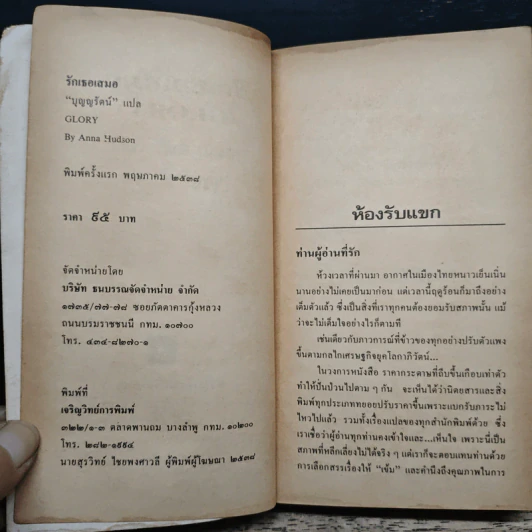 รักเธอเสมอ
"บุญญรัตน์" แปล
GLORY
By Anna Hudson
พิมพ์ครั้งแรก พฤษภาคม ๒๕๓๘
ราคา ๕๕ บาท
จัดจำหน่ายโดย
บริษัท ธนบรรณจัดจำหน่าย จำกัด
๑๗๓๕/๗๗-๗๘ ซอยภัคดาคารกุ้งหลวง
ถนนบรมราชชนนี กทม. ๑๐๗๐๐
โทร. ๔๓๔-๘๒๗๐-๑
พิมพ์ที่
เจริญวิทย์การพิมพ์
๓๒๒/๑-๓ ตลาดพานถม บางลำพู กทม. ๑๐๒๐๐
โทร. ๒๘๒-๑๙๙๔
นายสุรวิทย์ ไชยพงศาวลี ผู้พิมพ์ผู้โฆษณา ๒๕๓๘
ห้องรับแขก
ท่านผู้อ่านที่รัก
ห้วงเวลาที่ผ่านมา อากาศในเมืองไทยหนาวเย็นเนิ่น
นานอย่างไม่เคยเป็นมาก่อน แต่เวลานี้ฤดูร้อนก็มาถึงอย่าง
เต็มตัวแล้ว ซึ่งเป็นสิ่งที่เราทุกคนต้องยอมรับสภาพนั้น แม้
ว่าจะไม่เต็มใจอย่างไรก็ตามที
เช่นเดียวกับภาวการณ์ที่ข้าวของทุกอย่างปรับตัวแพง
ขึ้นตามกลไกเศรษฐกิจยุคโลกาภิวัตน์...
ในวงการหนังสือ ราคากระดาษที่ถีบขึ้นเกือบเท่าตัว
ทำให้ปั่นป่วนไปตาม ๆ กัน จะเห็นได้ว่านิตยสารและสิ่ง
พิมพ์ทุกประเภททยอยปรับราคาขึ้นเพราะแบกรับภาระไม่
ไหวไปแล้ว รวมทั้งเรื่องแปลของทุกสำนักพิมพ์ด้วย ซึ่ง
เราเชื่อว่าผู้อ่านทุกท่านคงเข้าใจและ...เห็นใจ เพราะนี่เป็น
สภาพที่หลีกเลี่ยงไม่ได้จริง ๆ แต่เราก็จะตอบแทนท่านด้วย
การเลือกสรรเรื่องให้ "เข้ม" และคำนึงถึงคุณภาพในการ